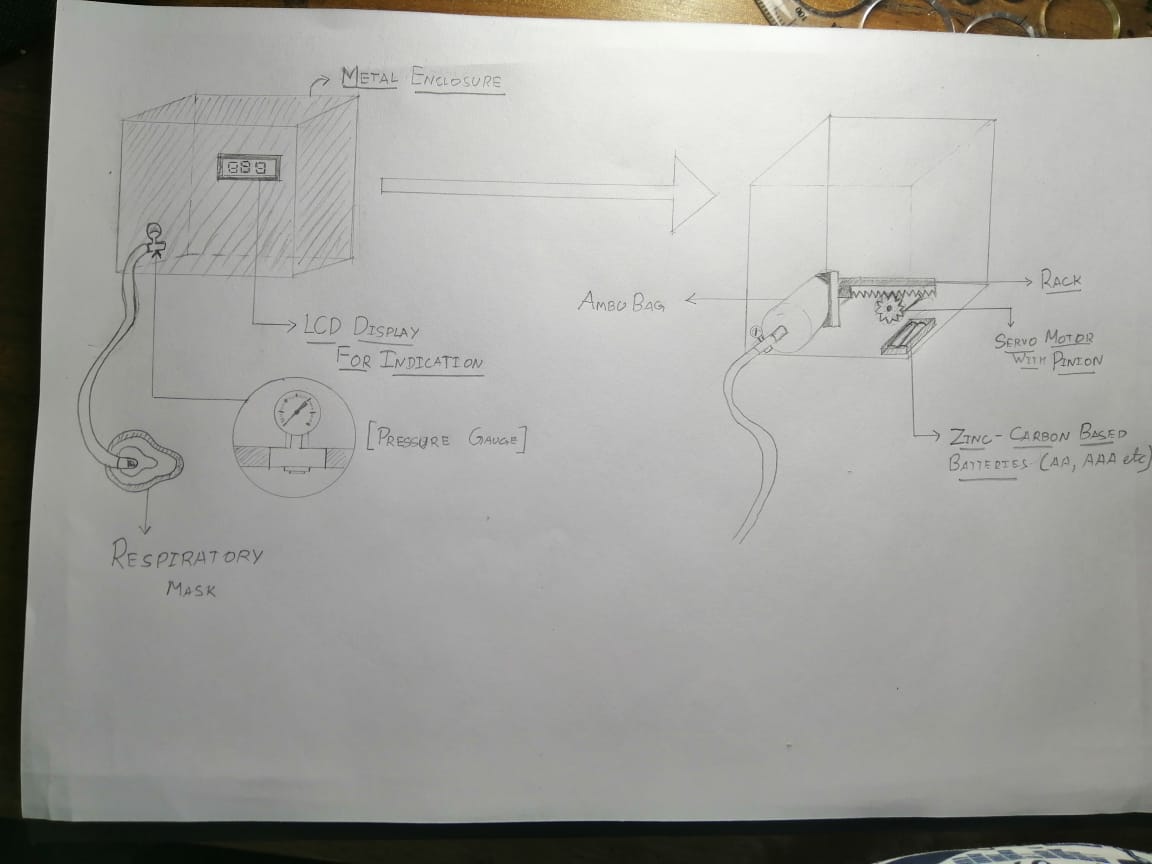 METAL ENCLOSURE
LCD DISPLAY
FOR INDICATION
[PRESSURE GAUGE]
RESPIRATORY
MASK
AMBU BAG
RACK
SERVO MOTOR
WITH PINION
ZINC-CARBON BASED
BATTERIES (AA, AAA etc)